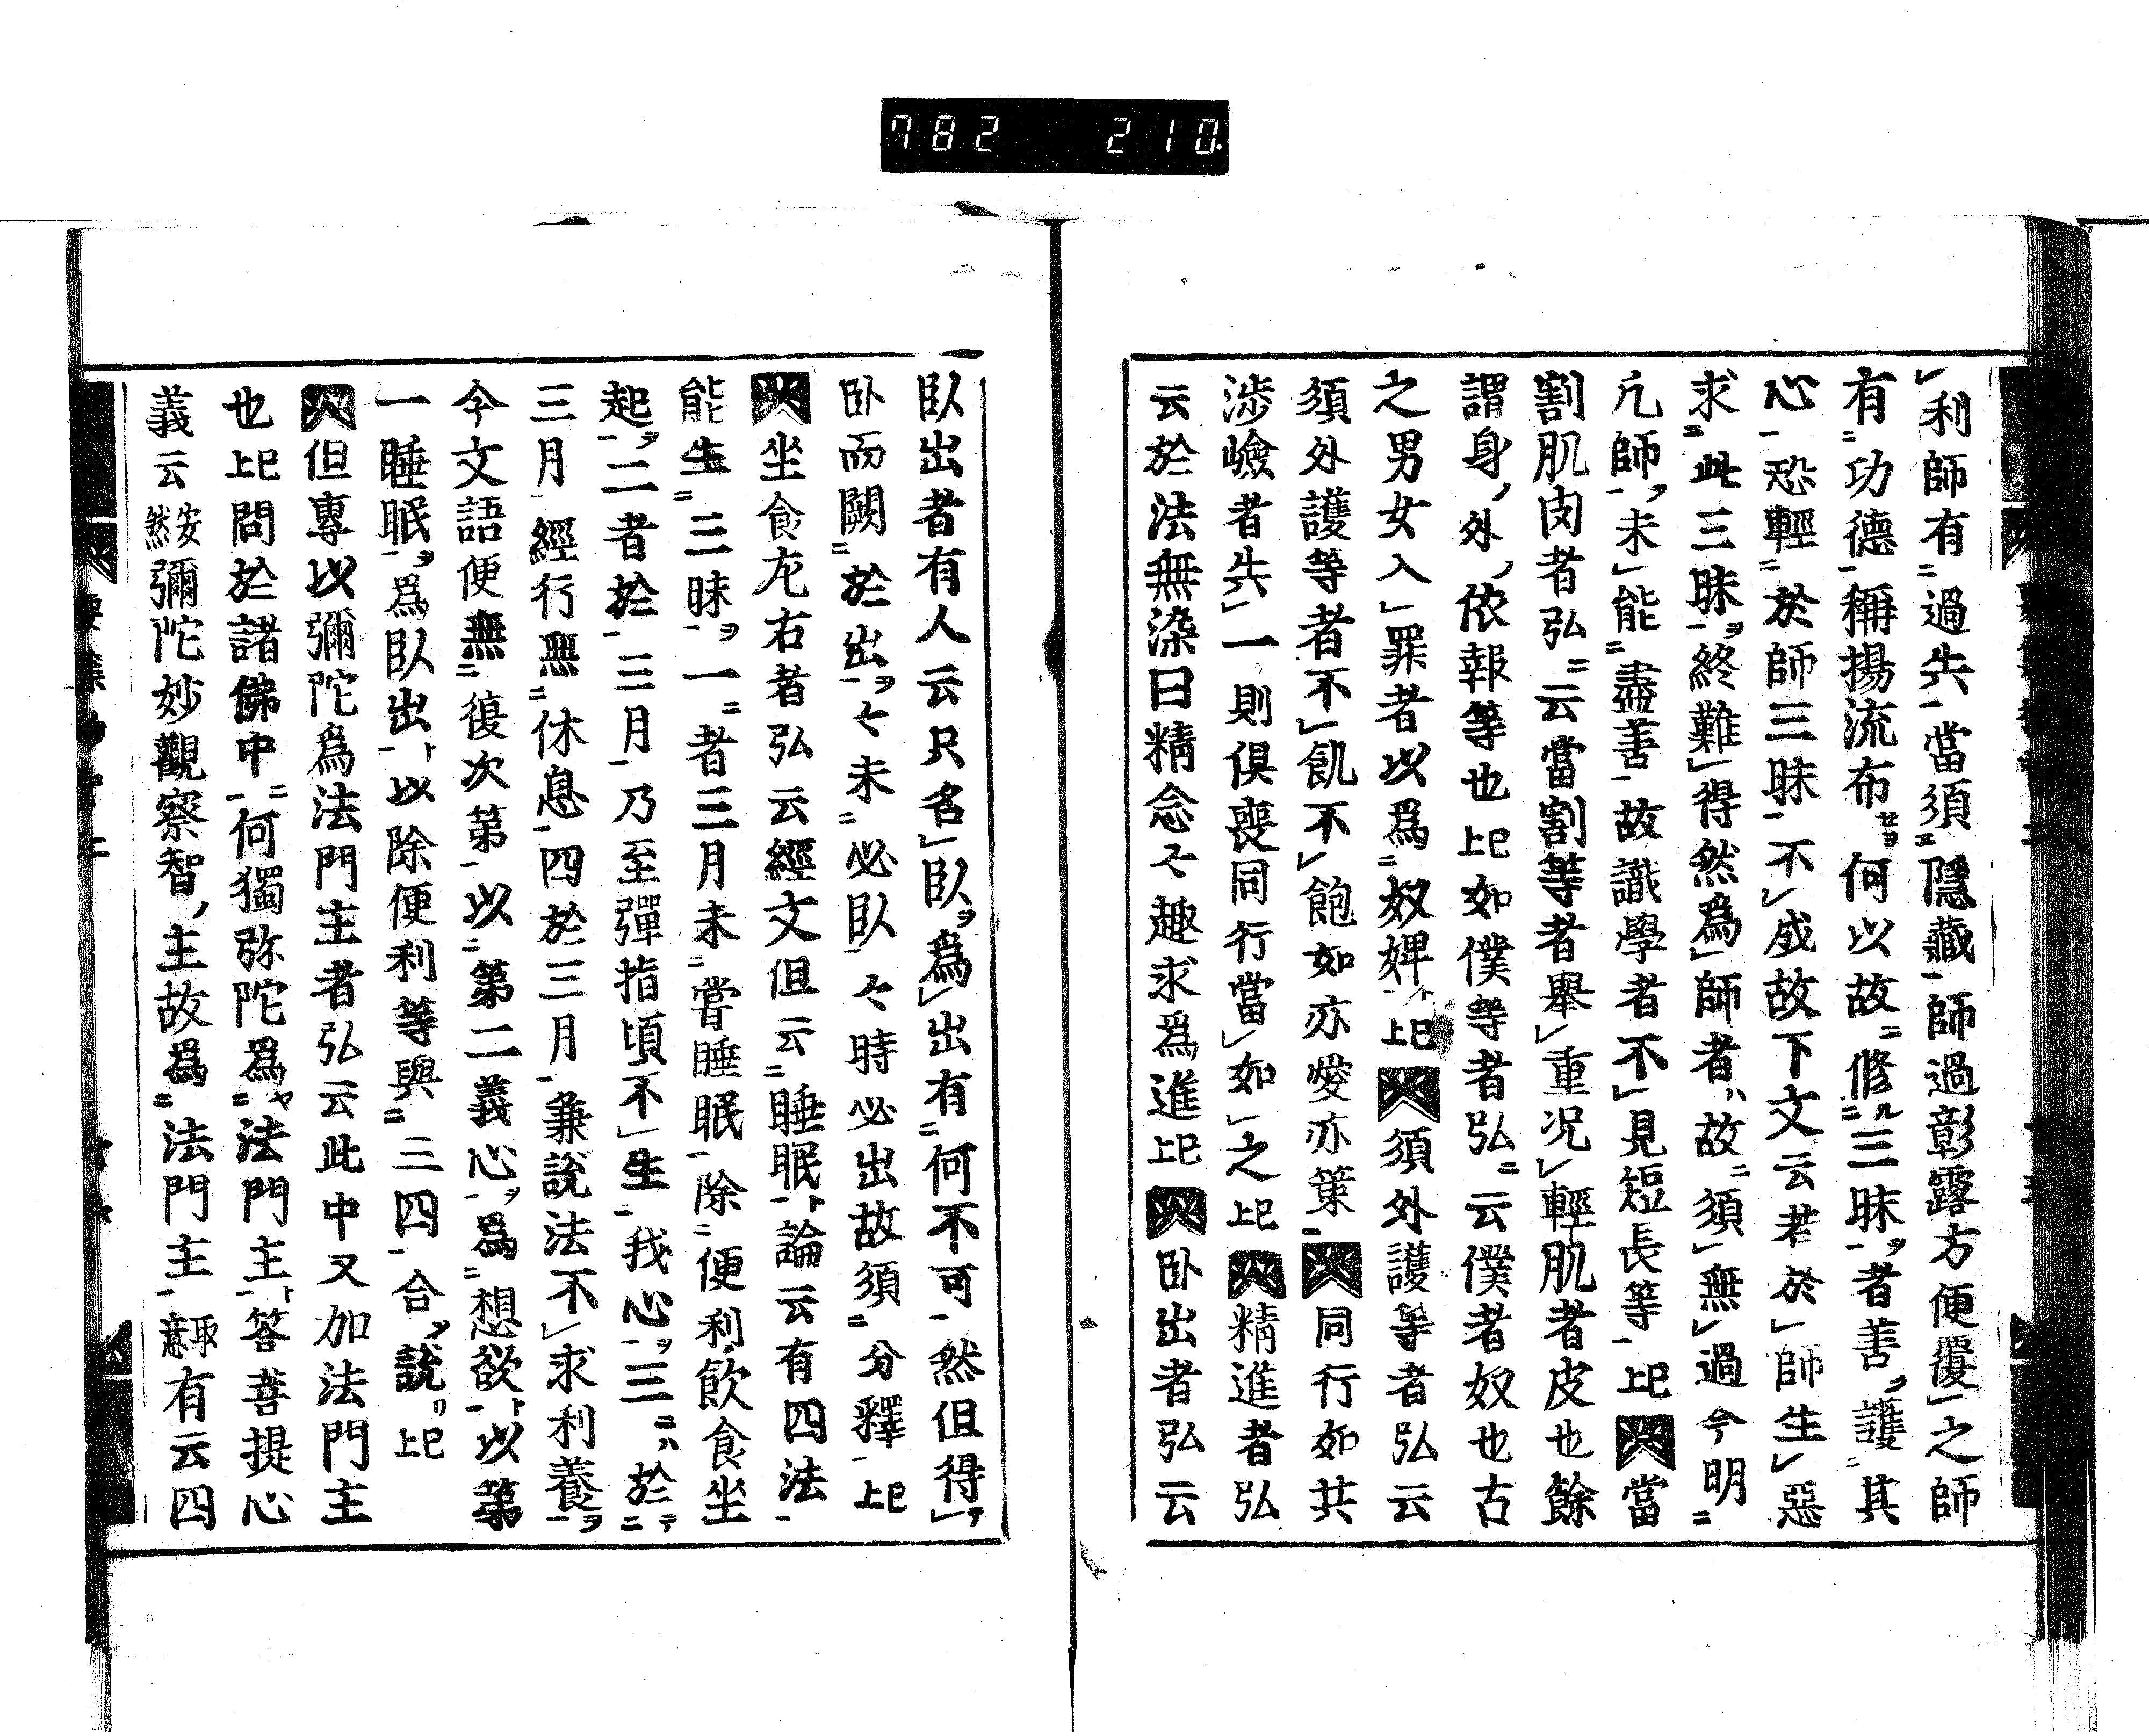 782 210
利師有過失當須隱藏師過彰露方便覆之師
有功德稱揚流布何以故修三昧者善護其
心恐輕於師三昧不成故下文云若於師生惡
求此三昧終難得然為師者故須無過今明
凡師未能盡善故識學者不見短長等上已 當
割肌肉者弘云當割等者舉重况輕肌者皮也餘
謂身外依報等也上已如僕等者弘云僕者奴也古
之男女入罪者以爲奴婢上已 須外護等者弘云
須外護等者不飢不飽如亦愛亦策 同行如共
涉嶮者失一則俱喪同行當如之上已 精進者弘
云於法無染曰精念々趣求爲進上已 卧出者弘云
臥出者有人云只名臥爲出有何不可然但得
卧而闕於出々未必臥々時必出故須分釋上已
坐食左右者弘云經文但云睡眠論云有四法
能生三昧一者三月未嘗睡眠除便利飲食坐
起二者於三月乃至彈指頃不生我心三於
三月經行無休息四於三月兼說法不求利養
今文語便無復次第以第二義心爲想欲以第
一睡眠爲臥出以除便利等與三四合說上已
但專以彌陀爲法門主者弘云此中又加法門主
也上已問於諸佛中何獨弥陀爲法門主答菩提心
義云安然彌陀妙觀察智主故爲法門主取意有云四